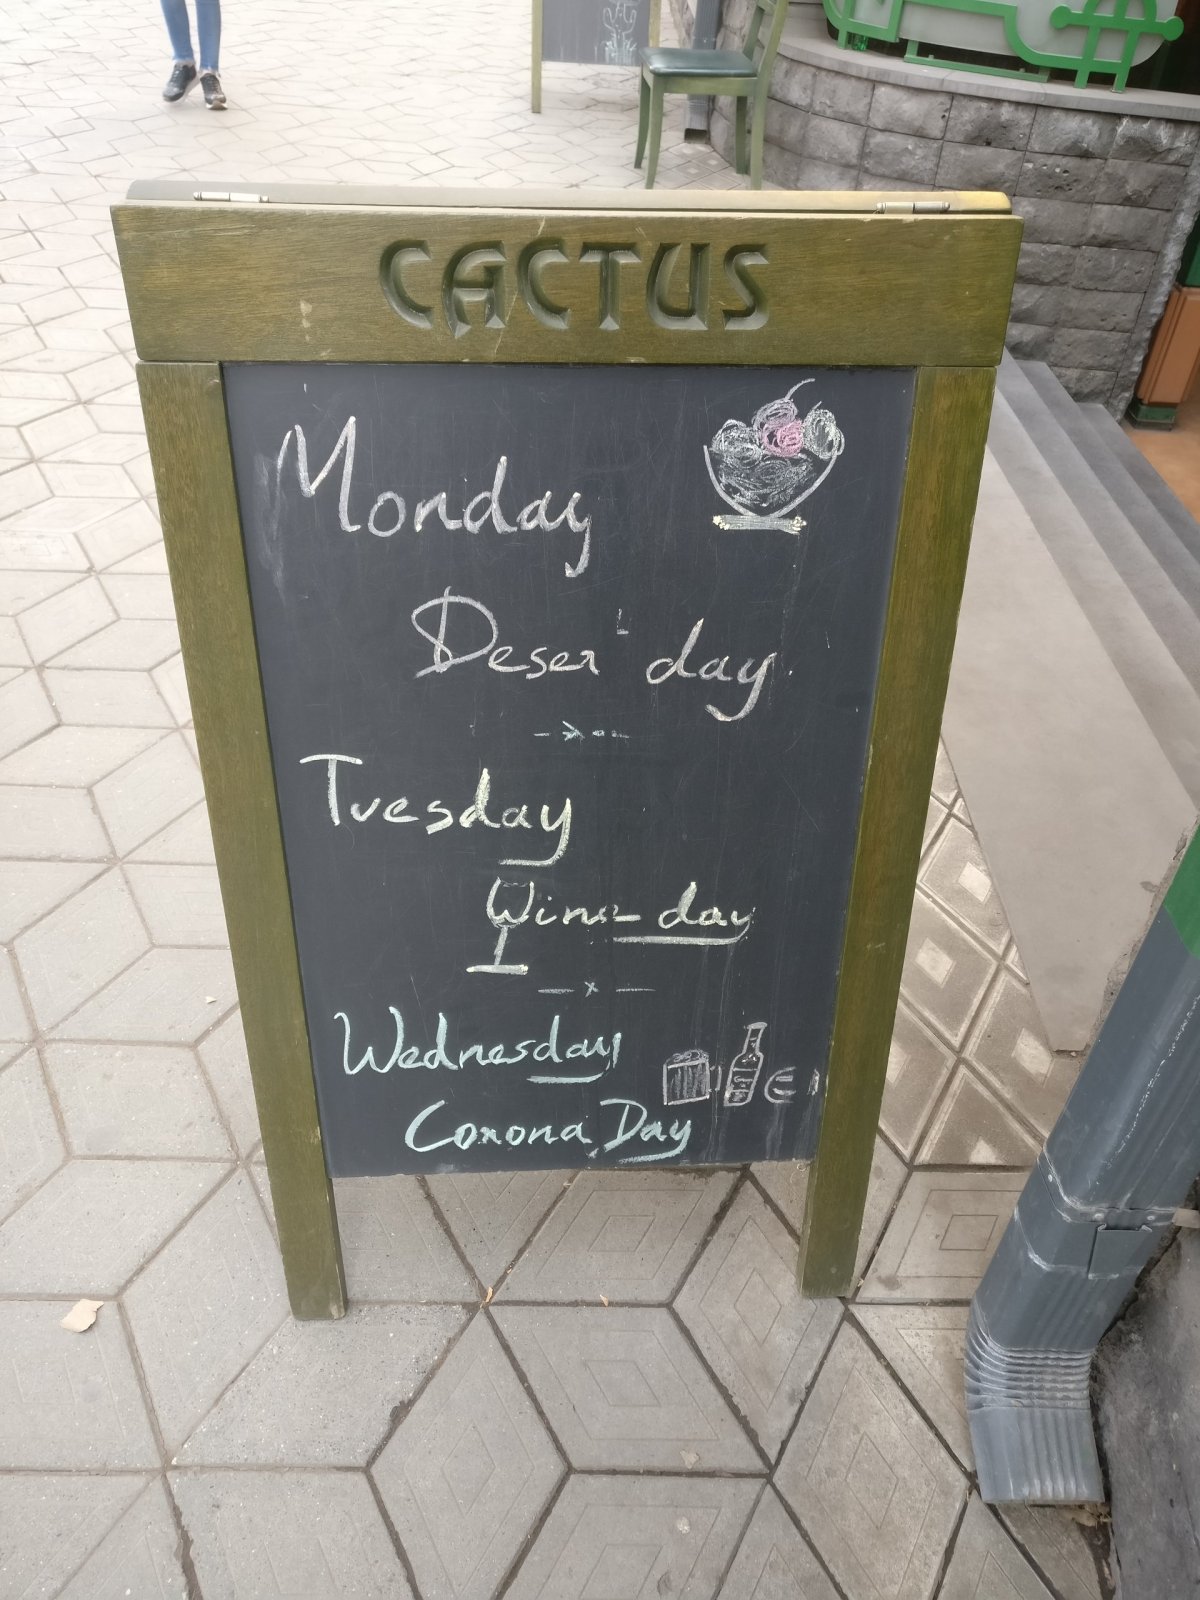 CACTUS
Monday
Deser day
Tuesday
Wine day
Wednesday
Corona Day